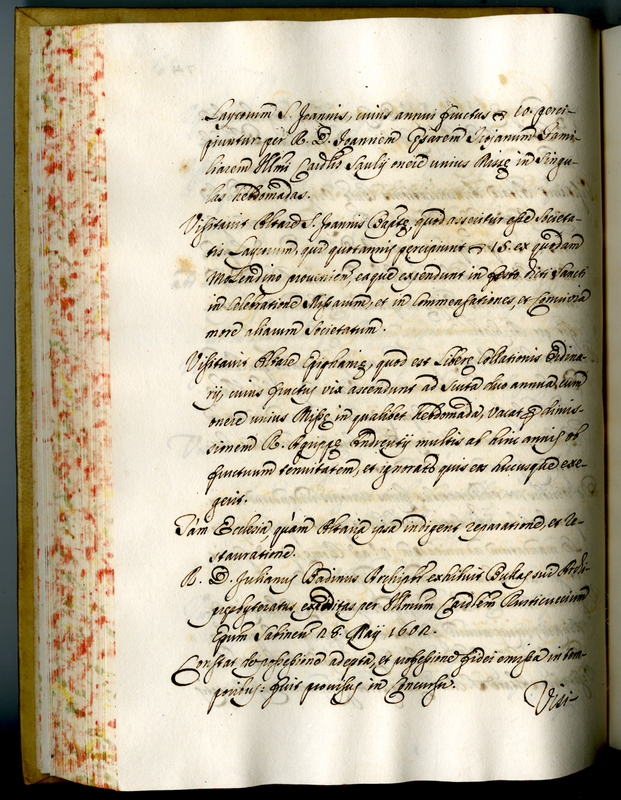 Laycorum S. Joannis, cuius annui fructus 10. perci-
piuntur per R. D. Joannem Cesarem Fami-
liarem Illmi Cardlis Saulij onere unius Missę in singu-
las hebdomadas.
Visitavit Altare S. Joannis Baptę, quod asseritur esse Societa-
tis Laycorum, qui quotannis percipiunt 15. ex quodam
Molendino provenien, eaque expendunt in festo dicti Sancti
in celebratione Missarum, et in commensationes, et Convivia
more aliarum Societatum.
Visitavit Altare Epiphanię, quod est liberę Collationis Ordina-
rij, cuius fructus vix ascendunt ad scuta duo annua, cum
onere unius Missę in qualibet hebdomada, vacat per dimis-
sionem R. Agrippę Andreutij multis ab hinc annis ob
fructuum tenuitatem, et ignorat quis ea hucusque exe-
gerit.
Tam Ecclesia quàm Altaria ipsa indigent reparatione, et re-
stauratione.
R. D. Julianus Badinus Archipbr exhibuit Bullas sui Archi-
presbyteratus expeditas per Illmum Cardlem
Epum Sabinen 28. Maij 1602.
Constat de possessione adepta, et professione fidei emissa in tem-
poribus: fuit provisus in Concursu.
Visi-